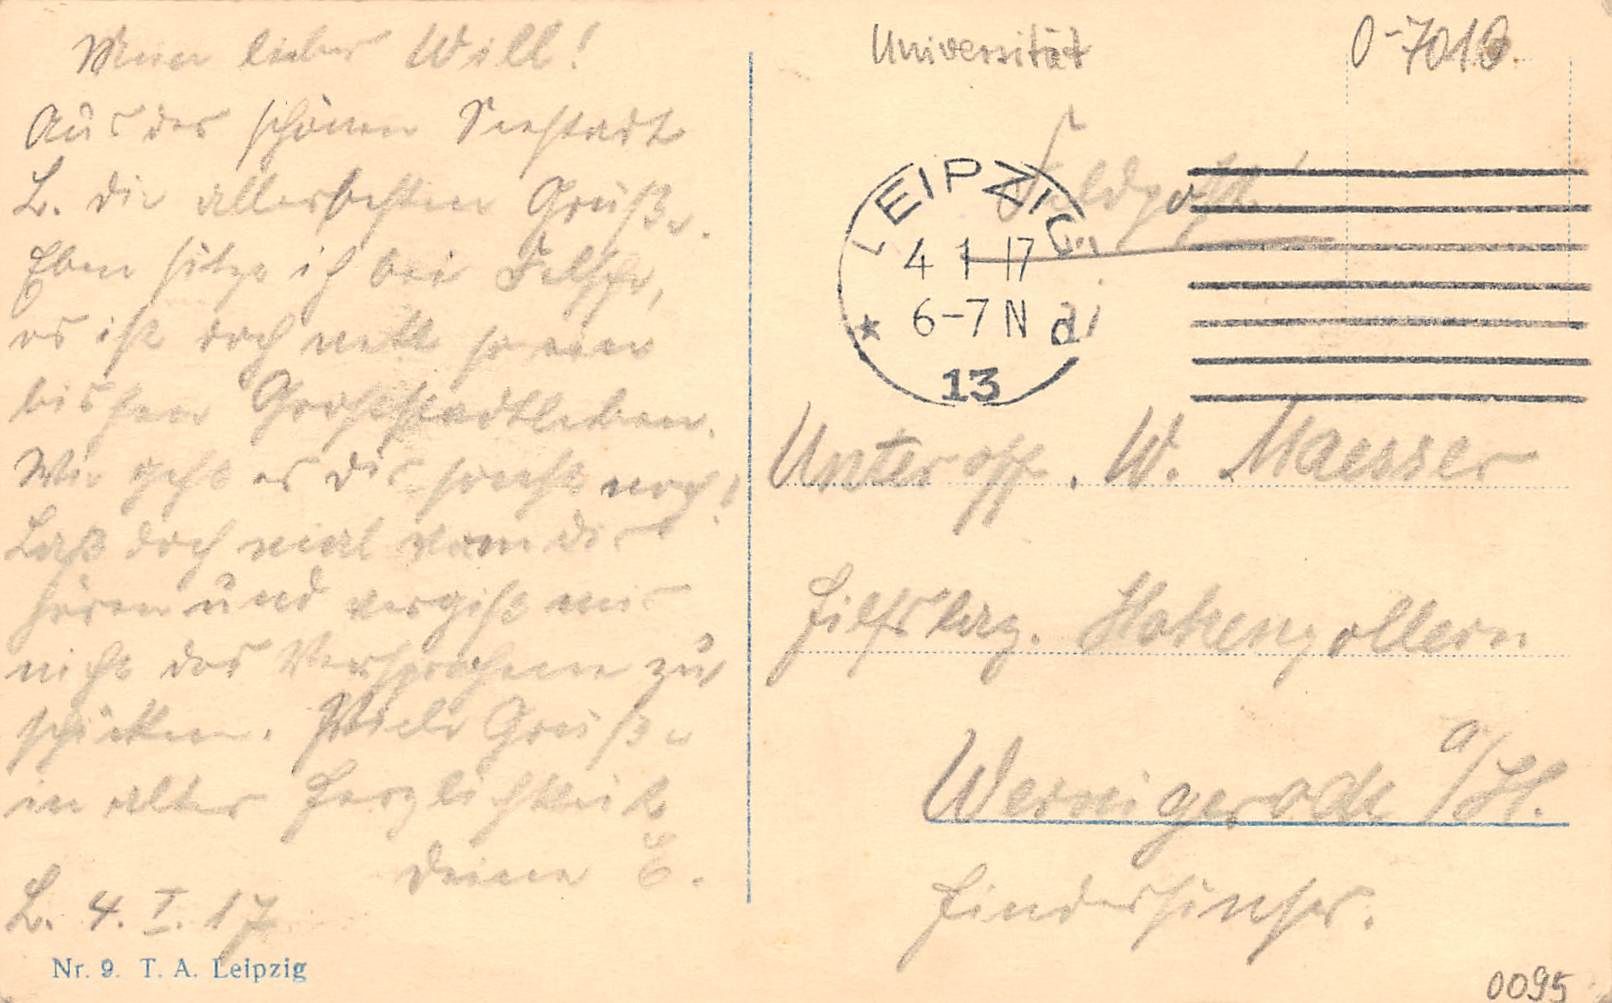 Mein lieber Will!
Aus der schönen Seestadt
L. die allerbesten Grüße.
Eben sitze ich bei Felsche,
es ist doch nett so ein
bischen Großstadtleben.
Wie geht es dir sonst noch?
Laß doch mal von dir
hören und vergiß mir
nicht das Versprochene zu
schicken. Viele Grüße
in alter Herzlichkeit
Deine E.
L. 4. I. 17
Nr. 9. T. A. Leipzig
Universität
O-7010.
Feldpost!
LEIPZIG
4 1 17
6-7 N
d
13
Unteroff. W. Maesser
Hilfslaz. Hohenzollern
Wernigerode a/H.
Hindersinstr.
0095